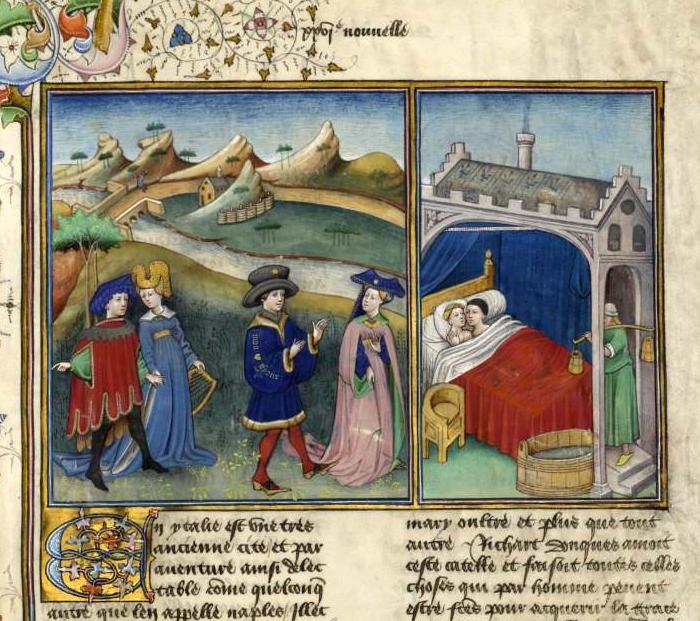 xxvi^e nouuelle
En ytalie est vne tres
ancienne cite et par
auenture ainsi delec
table come quelconq
autre que len appelle naples Illec
mary oultre et plus que tout
autre Richart donques amoit
ceste catelle et faisoit toutes celles
choses qui par homme peuent
estre fces pour acquerir la grace